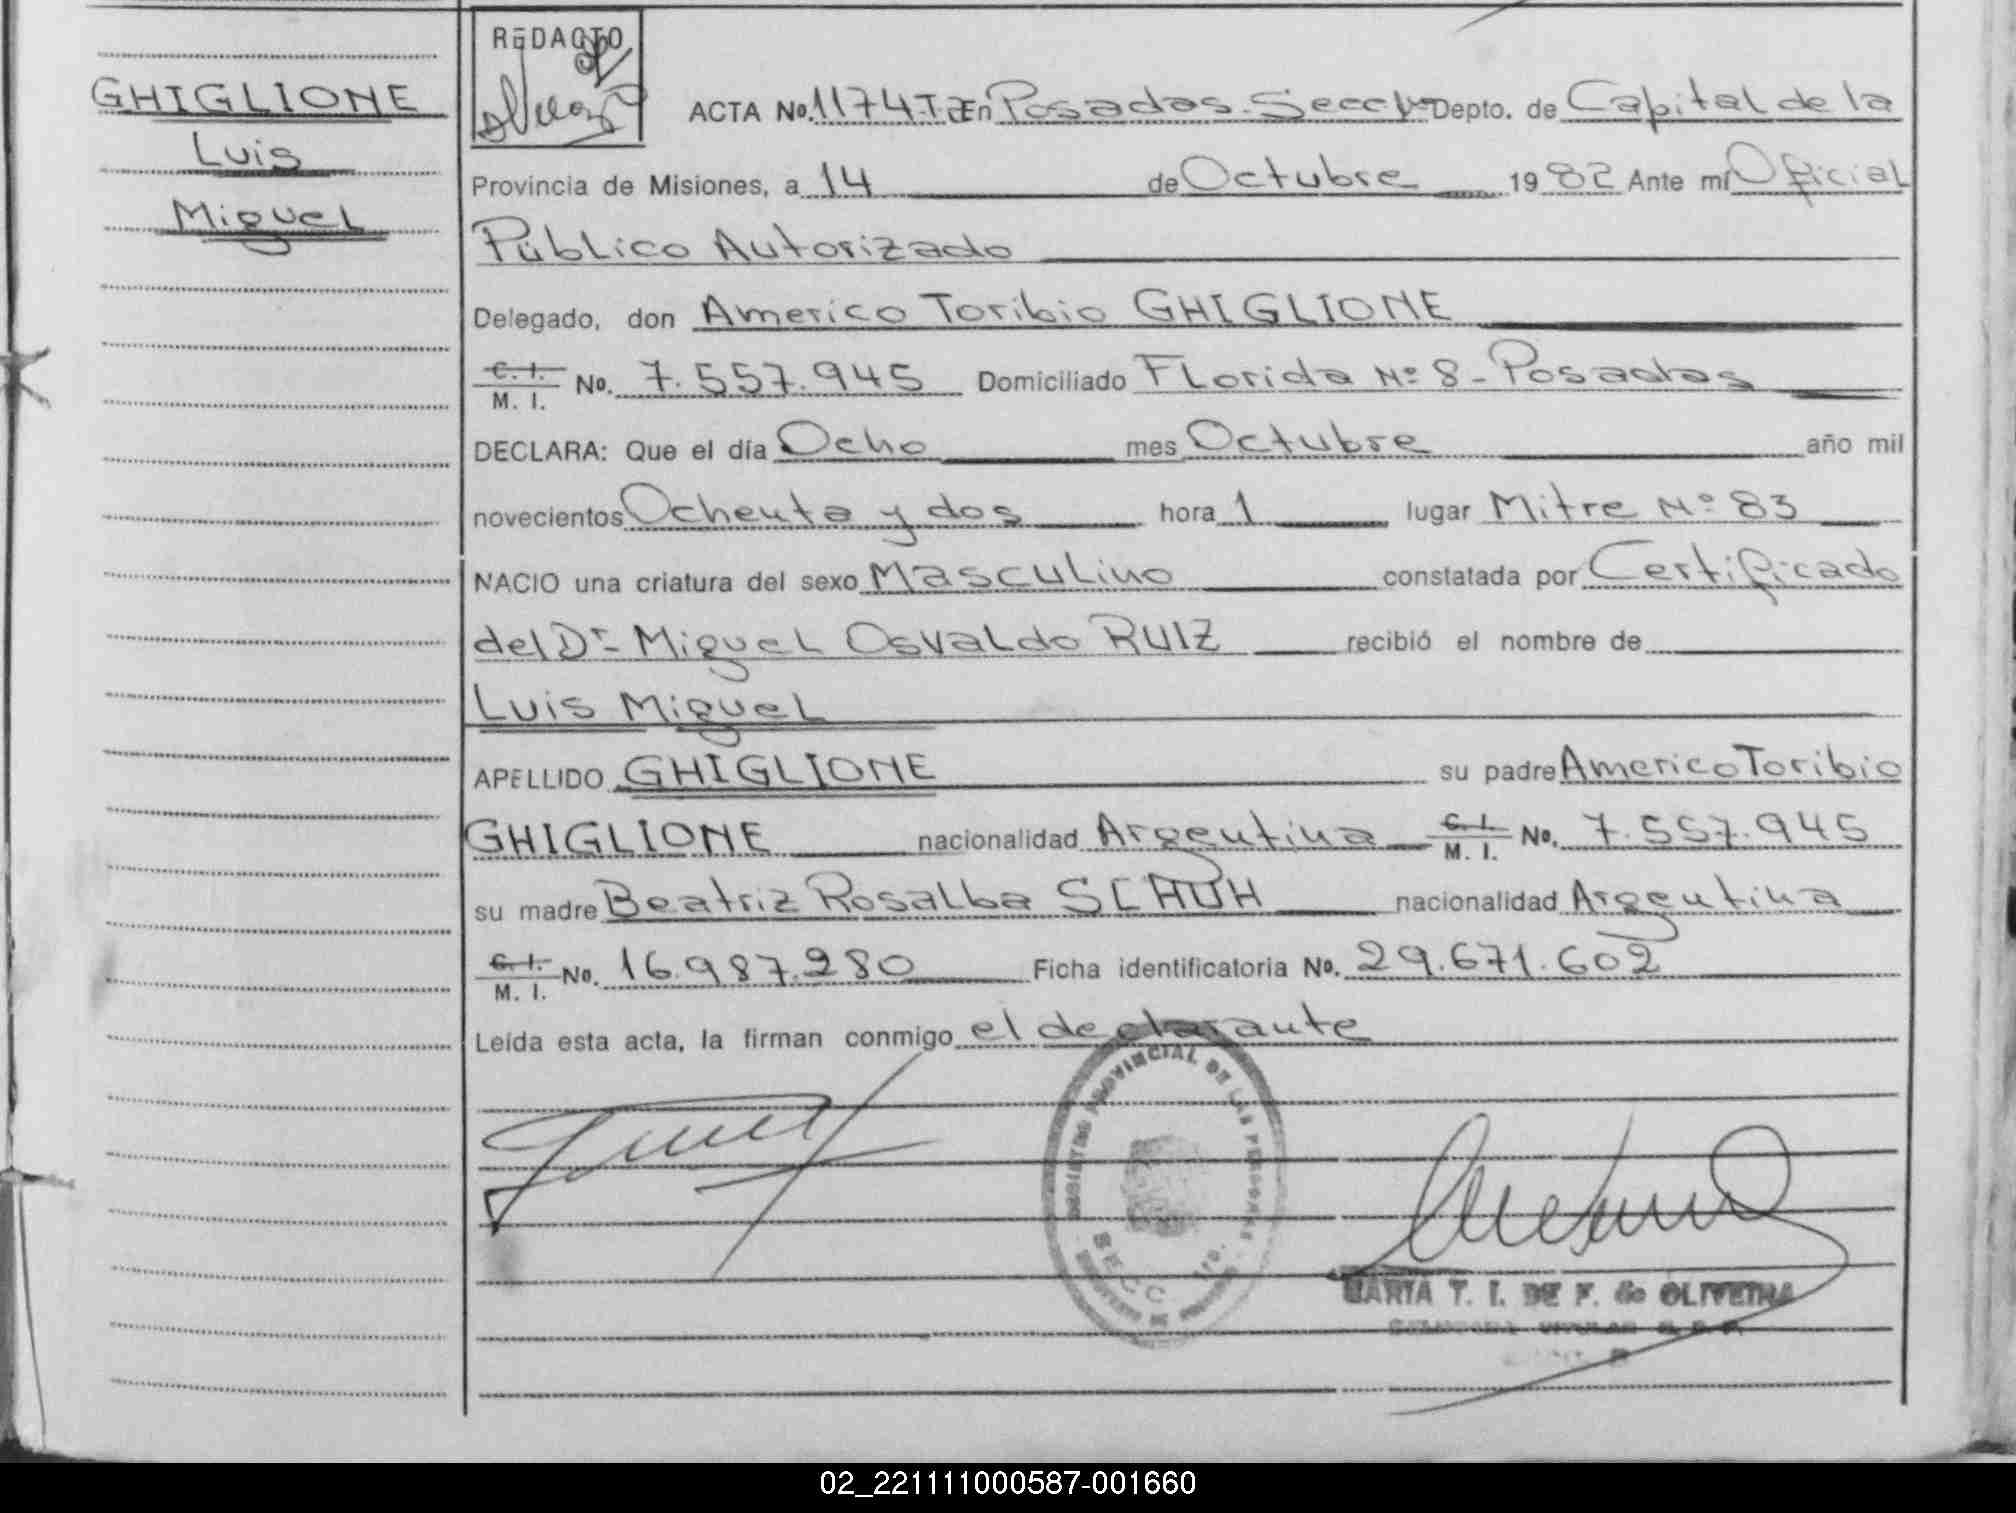 GHIGLIONE
Luis
Miguel
REDACTO
ACTA No. 1174-T En Posadas-Secc Depto. de Capital de la
Provincia de Misiones, a 14 de Octubre 1982 Ante mí Oficial
Público Autorizado
Delegado, don Americo Toribio GHIGLIONE
C. I. M. I. No. 7.557.945 Domiciliado Florida Nº 8-Posadas
DECLARA: Que el día Ocho mes Octubre año mil
novecientos Ochenta y dos hora 1 lugar Mitre Nº 83
NACIO una criatura del sexo Masculino constatada por Certificado
del Dr- Miguel Osvaldo RUIZ recibió el nombre de
Luis Miguel
APELLIDO GHIGLIONE su padre Americo Toribio
GHIGLIONE nacionalidad Argentina C. I. M. I. No. 7.557.945
su madre Beatriz Rosalba SCHUH nacionalidad Argentina
C. I. M. I. No. 16.987.280 Ficha identificatoria No. 29.671.602
Leída esta acta, la firman conmigo el declarante
REGISTRO PROVINCIAL DE LAS PERSONAS
SECC
MARIA T. I. DE F. de OLIVEIRA
02_221111000587-001660